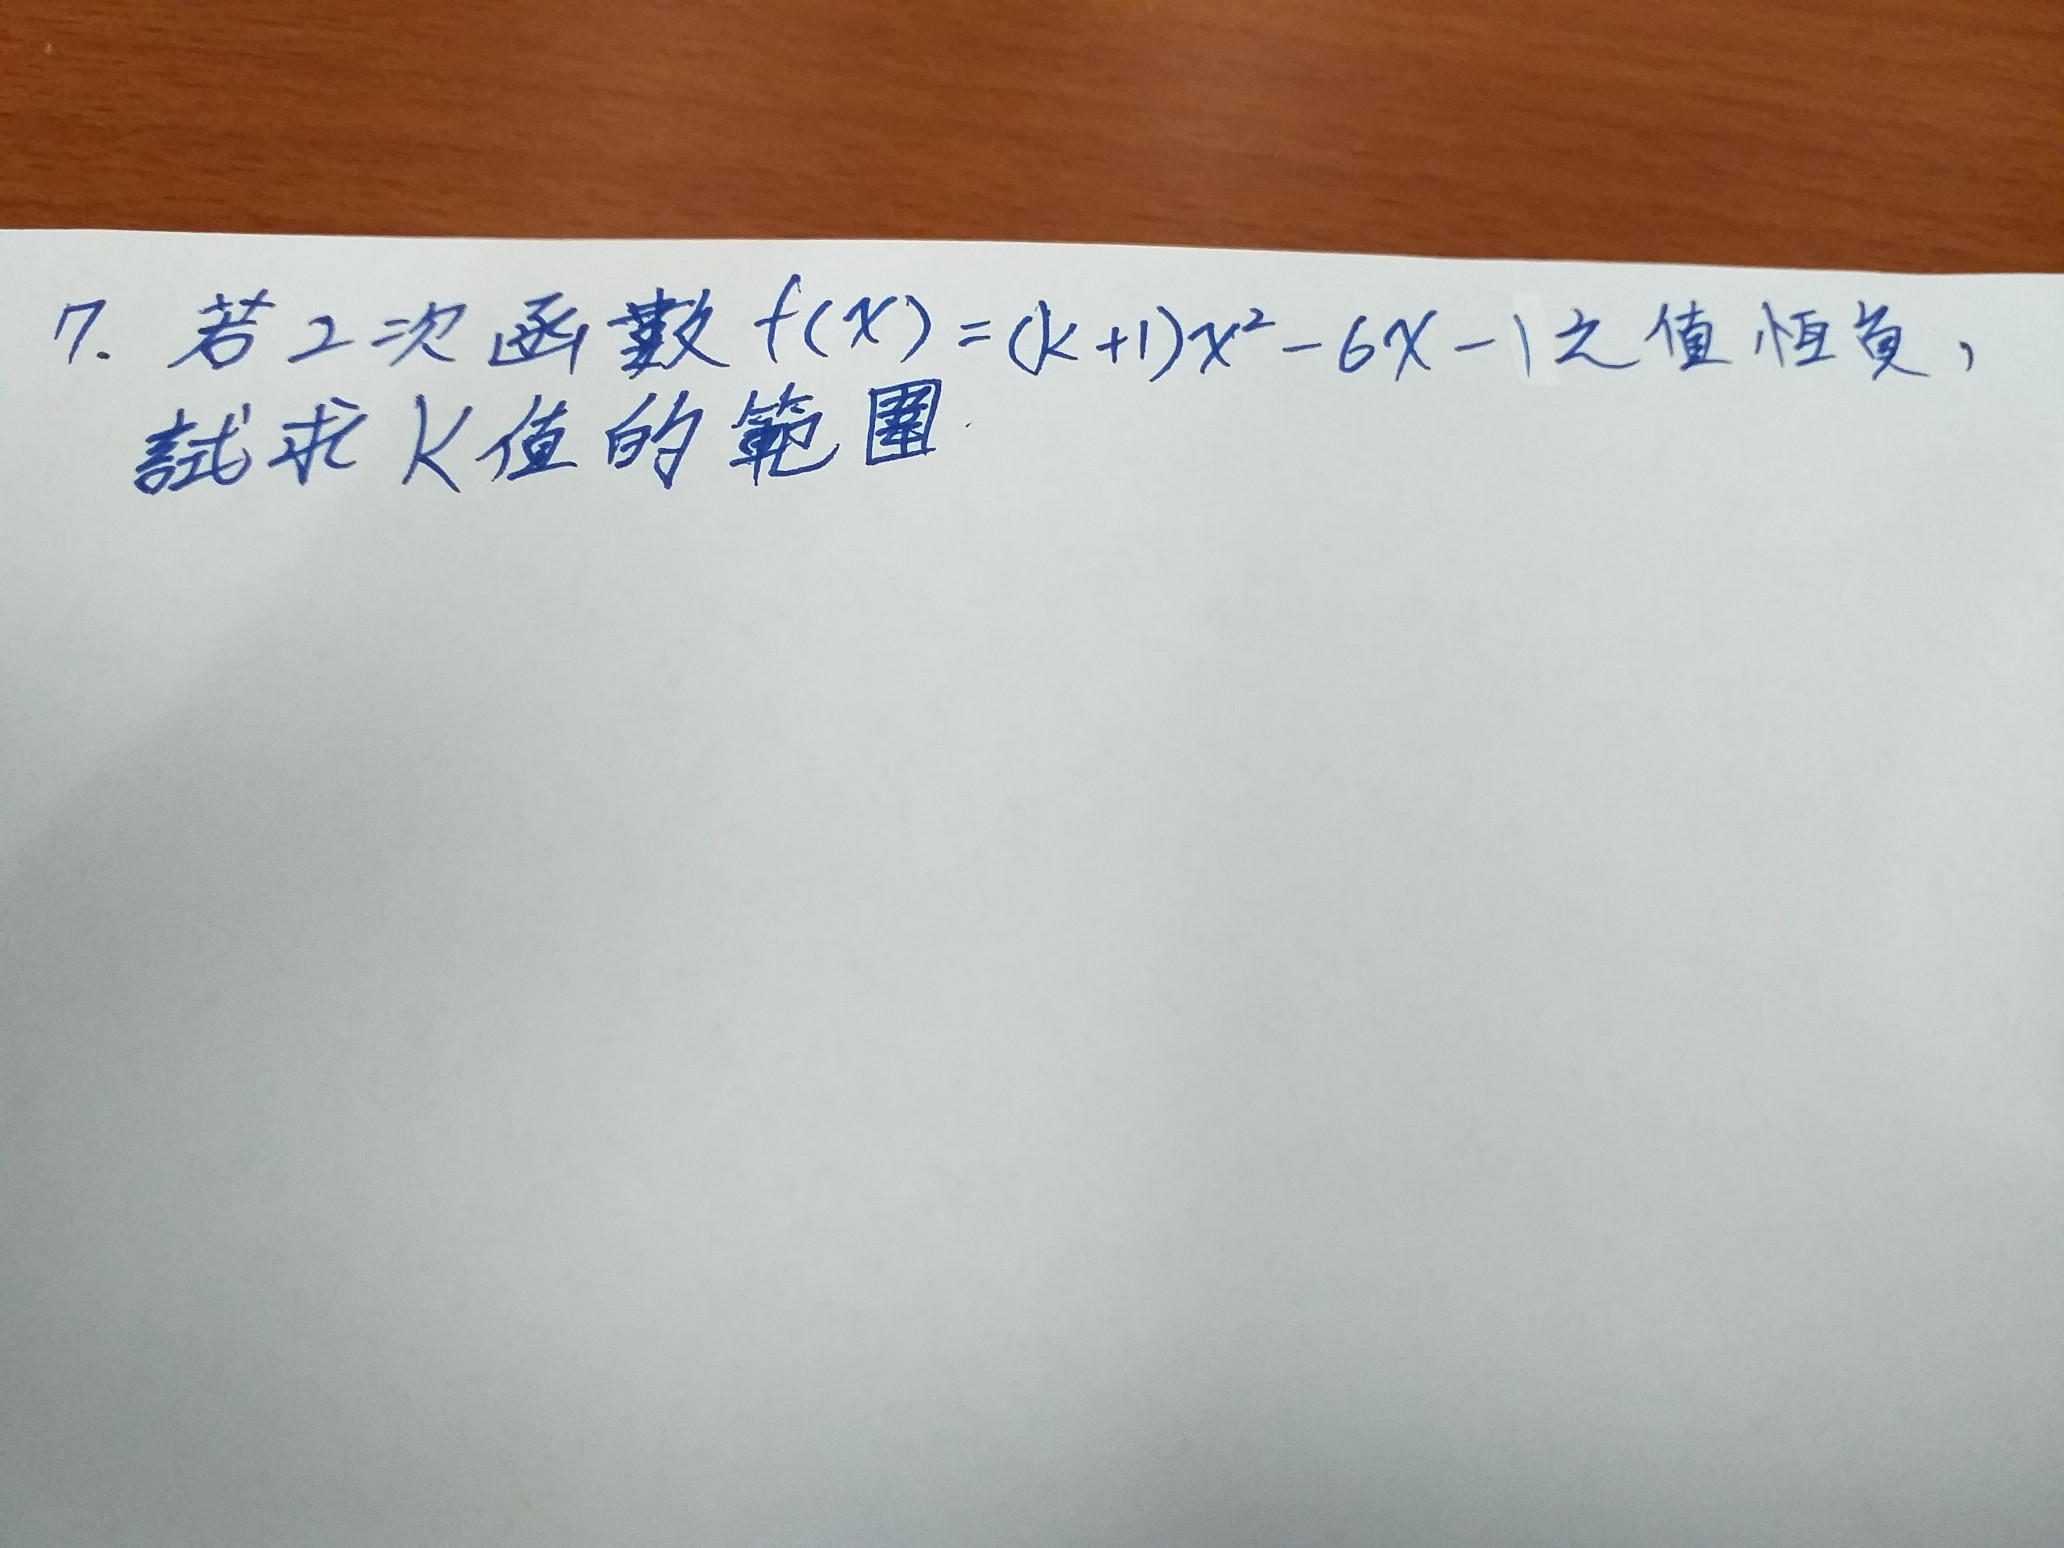 7. 若2次函數 f(x)=(k+1)x²-6x-1之值恒負,
試求k值的範圍.